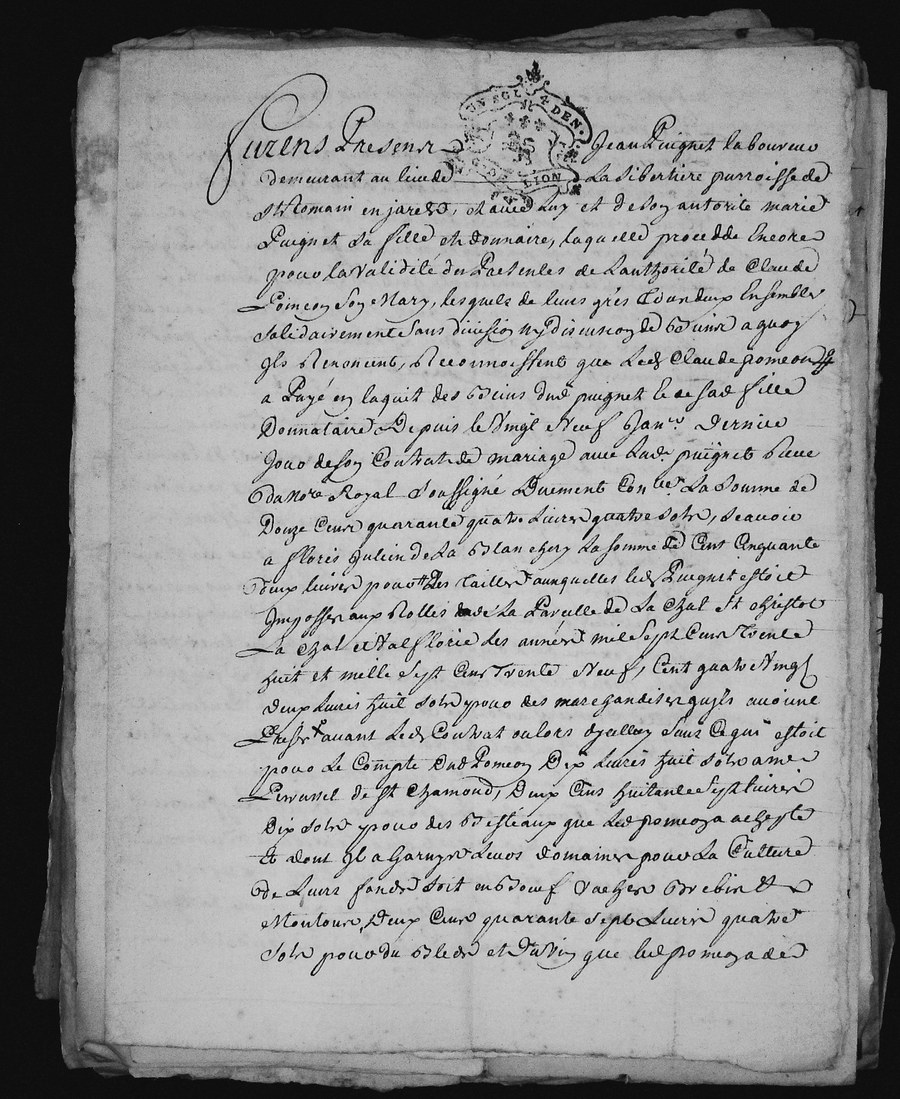 UN SOL 4 DEN.
G. DE LION
Furens Presens Jean Puignet laboureur
demeurant au lieu de La Sibertiere parroisse de
St Romain en jarest, et avec luy et de son autorité marie
Puignet sa fille et donnaire, laquelle procedde Encore
pour la validité des Presentes de Lauthorité de Claude
Pomeon son Mary, lesquels de leurs grés Tous deux Ensemble
Solidairement sans division ny discution de Biens a quoy
ils Renoncent, Reconnoissent que Led Claude pomeon
a Payé en laquit des Biens dud puignet et de sad fille
Donnataire Depuis le Vingt Neuf Janr Dernier
Jour de son Contrat de mariage avec lad puignet Receu
Du Nore Royal Soussigné Duement Conlé La Somme de
Douze Cens quarante quatre Livres quatre sols, Scavoir
a floris Julien de La Blanchery La somme de Cent Cinquante
deux livres pour Les Tailles auxquelles led Puignet estoit
Imposser aux Rolles de La Parcelle de La Chal St Christot
La Chal et Valflorie des années mil Sept Cens Trente
huit et mille Sept Cens Trente Neuf, Cent quatre Vingt
deux livres huit sols pour des marchandises
avant Led Contrat ou lors Sans Ce qui estoit
pour Le Compte Dud Pomeon Dix Livres huit Sols a me
de St Chamond, Deux Cens huitante Sept livres
Dix Sols pour des Besteaux que Led pomeon a achepté
Et dont Il a Garny Leurs domaines pour La Culture
de Leurs fonds Soit en Boeuf Vaches Brebis Et
Moutons, Deux Cens quarante Sept Livres quatre
Sols pour du Bled et du Vin que led pomeon a de